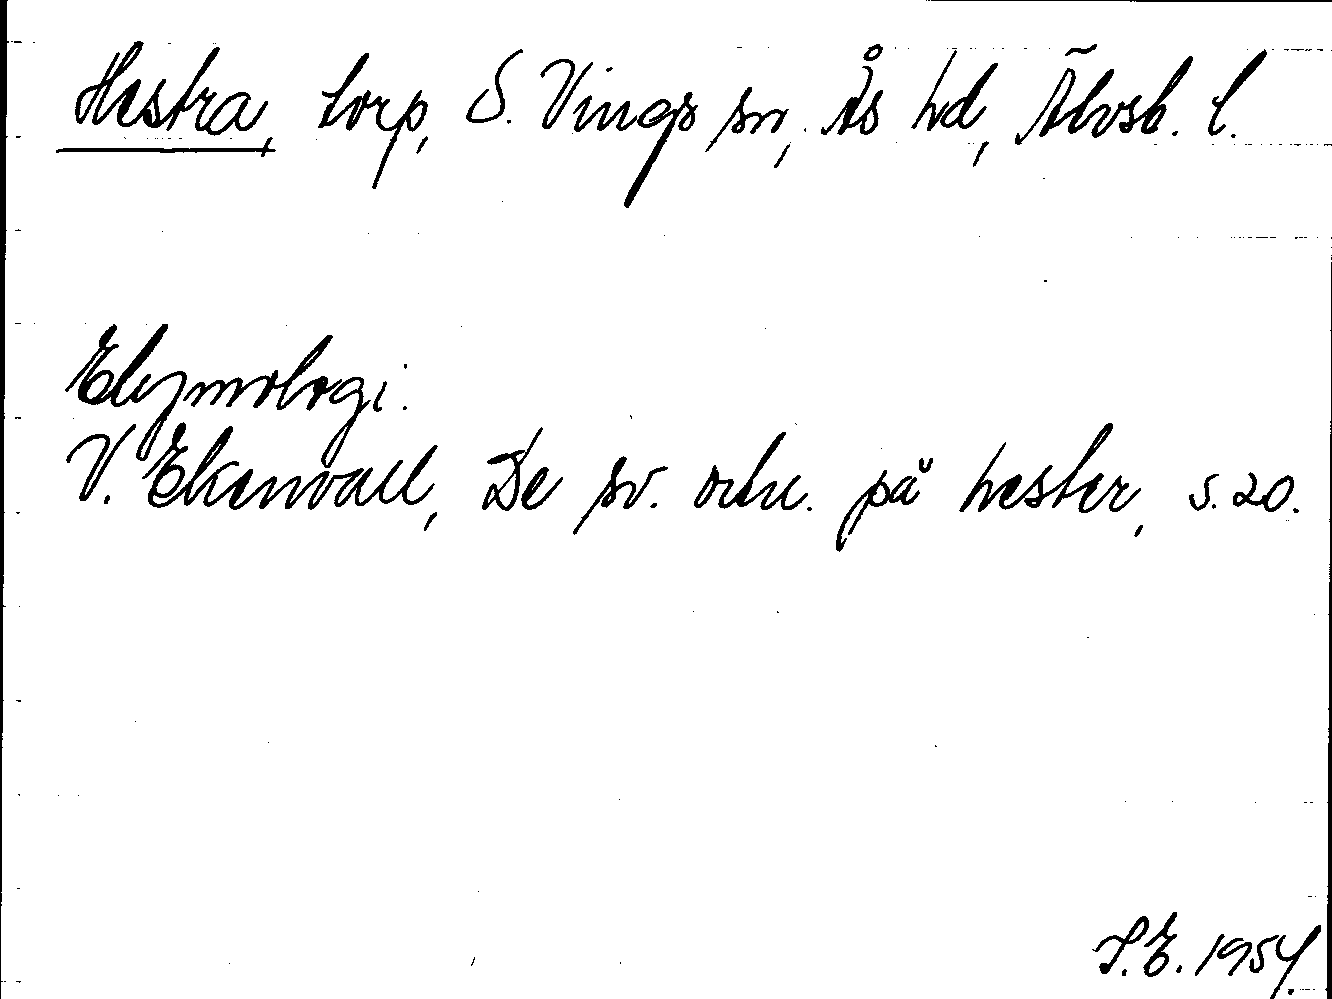 Hestra, torp, S. Vings sn, Ås hd, Älvsb. l.
Etymologi:
V. Ekenvall, De sv. ortn. på hester, s. 20.
S.E. 1954.